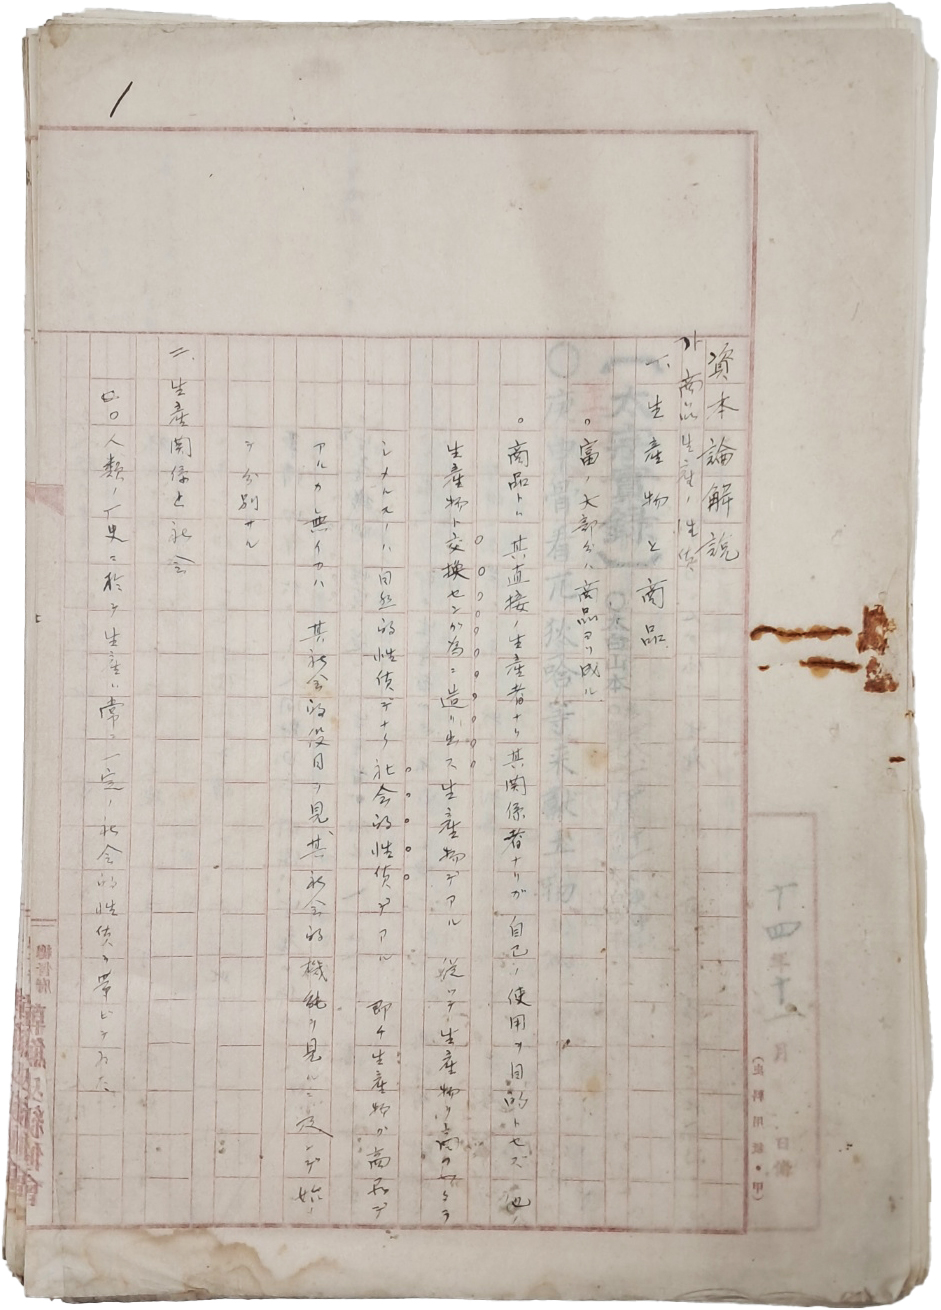 1
資本論解説
商品生産ノ性質
一、生産物と商品
。富ノ大部分ハ商品ヨリ成ル
。商品トハ其直接ノ生産者ナリ其関係者ナリガ自己ノ使用ヲ目的トセズ他ノ
生産物ト交換センガ為ニ造リ出ス生産物デアル 従ッテ生産物ヲ商品タラ
シメルモノハ自然的性質デナク社会的性質デアル 即チ生産物ガ商品デ
アルカ無イカハ其社会的役目ヲ見、其社会的機能ヲ見ルニ及ンデ始メ
テ分別サル
二、生産関係と社会
人類ノ歴史ニ於テ生産ハ常ニ一定ノ社会的性質ヲ帯ビテ
(史料用紙・甲)